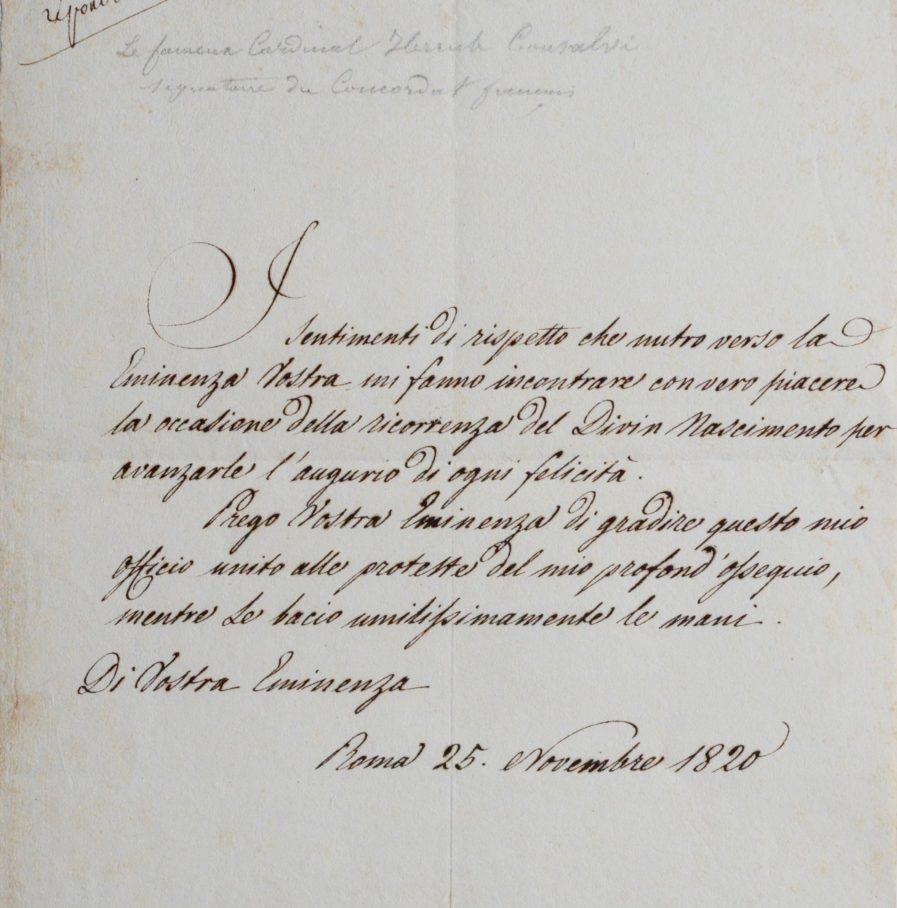 Le fameux Cardinal Consalvi
signataire du Concordat français
I
sentimenti di rispetto che nutro verso la
Eminenza Vostra mi fanno incontrare con vero piacere
la occasione della ricorrenza del Divin Nascimento per
avanzarle l'augurio di ogni felicità.
Prego Vostra Eminenza di gradire questo mio
officio unito alle proteste del mio profond'ossequio,
mentre Le bacio umilissimamente le mani.
Di Vostra Eminenza
Roma 25. Novembre 1820